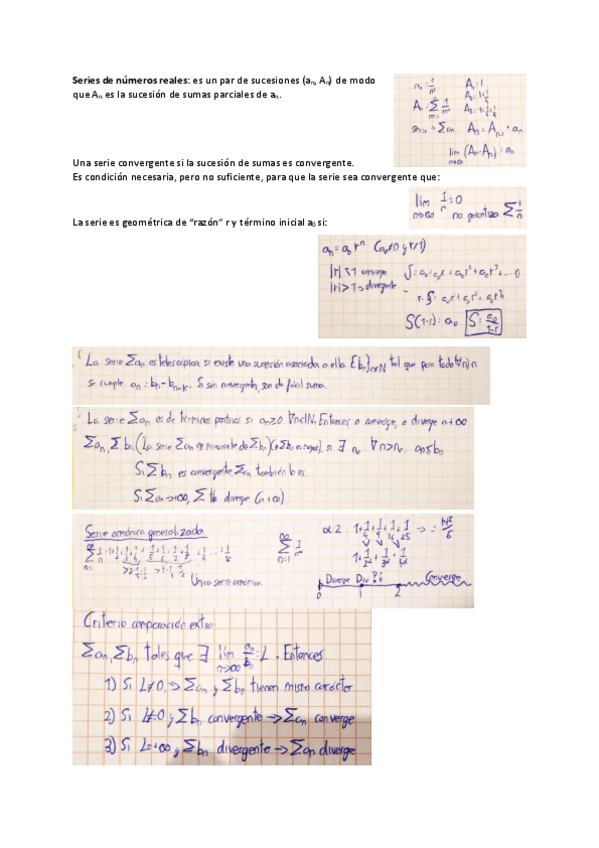 Series de números reales: es un par de sucesiones (aₙ, Aₙ) de modo
que Aₙ es la sucesión de sumas parciales de aₙ.
Aₙ = Aₙ₋₁ + aₙ
lim (Aₙ-Aₙ₋₁) = aₙ
Una serie convergente si la sucesión de sumas es convergente.
Es condición necesaria, pero no suficiente, para que la serie sea convergente que:
lim 1/n = 0
n→∞ no garantiza Σ 1/n
La serie es geométrica de "razón" r y término inicial a₀ si:
aₙ = a₀ rⁿ (a₀≠0 y r≠1)
|r|<1 converge
|r|>1 → divergente
S = a₀ + a₀r + a₀r² + a₀r³ + ...
r·S = a₀r + a₀r² + a₀r³
S(1-r) = a₀ S = a₀/1-r
La serie Σaₙ es telescópica si existe una sucesión asociada a ella {bₙ}n∈N tal que para todo ∀n
se cumple aₙ = bₙ - bₙ₋ₖ. Si son convergentes, son de fácil suma.
La serie Σaₙ es de términos positivos si aₙ≥0 ∀n∈N. Entonces o converge, o diverge a +∞
Σaₙ, Σbₙ (La serie Σaₙ es minorante de Σbₙ) si ∃ n₀ ∀n>n₀, aₙ≤bₙ
Si Σbₙ es convergente Σaₙ también lo es.
Si Σaₙ→+∞, Σbₙ diverge (a +∞)
Serie armónica generalizada
α=2 : 1+1/4+1/9+1/16+1/25 → = π²/6
1+1/2²+1/3²+1/4²
Única serie armónica.
Diverge Div Converge
0 1 2
Criterio comparación extra
Σaₙ, Σbₙ tales que ∃ lim n→∞ aₙ/bₙ = L. Entonces
1) Si L≠0, → Σaₙ y Σbₙ tienen mismo carácter
2) Si L=0 y Σbₙ convergente → Σaₙ converge
3) Si L=+∞ y Σbₙ divergente → Σaₙ diverge